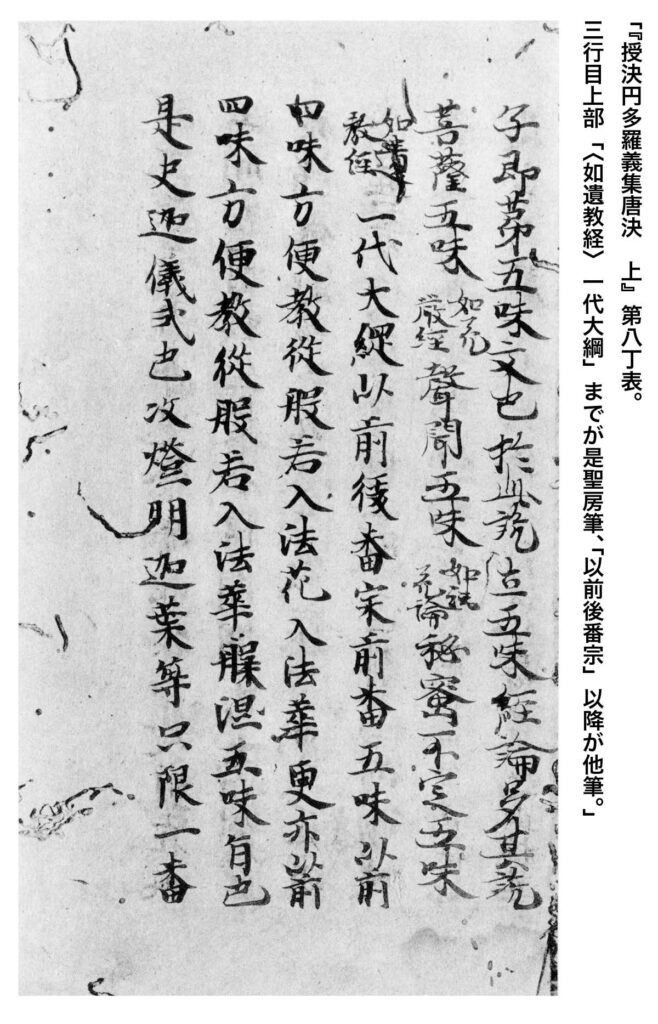 「『授決円多羅義集唐決　上』第八丁表。
三行目上部「〈如遺教経〉一代大綱」までが是聖房筆、「以前後番宗」以降が他筆。」
子即第五味文也於此説位五味経論多其説
菩薩五味如花厳経聲聞五味如説花論秘蜜不定五味
如遺教経一代大綱以前後番宗前番五味以前
四味方便教従般若入法花入法華更亦以前
四味方便教従般若入法華醍涅五味有也
是史迦儀式也攻燈明迦葉等只限一番